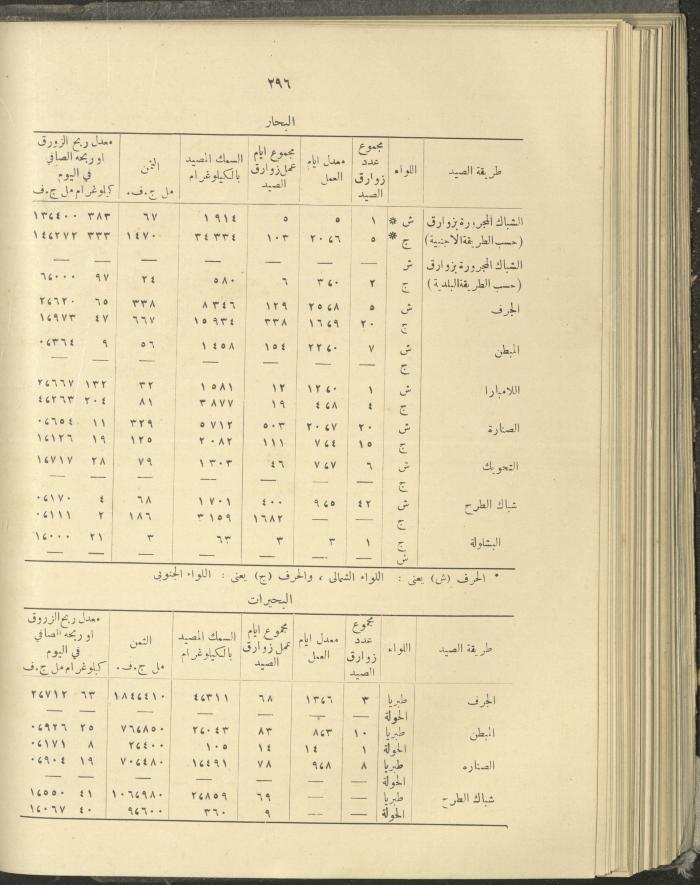 ٢٩٦
البحار
طريقة الصيد | اللواء | مجموع عدد زوارق الصيد | معدل ايام العمل | مجموع ايام عمل زوارق الصيد | السمك المصيد بالكيلوغرام | الثمن مل ج.ف. | معدل ربح الزورق او ربحه الصافي في اليوم كيلوغرام مل ج.ف
الشباك المجرورة بزوارق | ش * | ١ | ٥ | ٥ | ١٩١٤ | ٦٧ | ٣٨٣ | ١٣,٤٠٠
(حسب الطريقة الاجنبية) | ج * | ٥ | ٢٠,٦ | ١٠٣ | ٣٤٣٣٤ | ١٤٧٠ | ٣٣٣ | ١٤,٢٧٢
الشباك المجرورة بزوارق | ش | — | — | — | — | — | — | —
(حسب الطريقة البلدية) | ج | ٢ | ٣,٠ | ٦ | ٥٨٠ | ٢٤ | ٩٧ | ٤,٠٠٠
الجرف | ش | ٥ | ٢٥,٨ | ١٢٩ | ٨٣٤٦ | ٣٣٨ | ٦٥ | ٢,٦٢٠
ج | ٢٠ | ١٦,٩ | ٣٣٨ | ١٥٩٣٤ | ٦٦٧ | ٤٧ | ١,٩٧٣
المبطن | ش | ٧ | ٢٢,٠ | ١٥٤ | ١٤٥٨ | ٥٦ | ٩ | ٠,٣٦٤
ج | — | — | — | — | — | — | —
اللامبارا | ش | ١ | ١٢,٠ | ١٢ | ١٥٨١ | ٣٢ | ١٣٢ | ٢,٦٦٧
ج | ٤ | ٤,٨ | ١٩ | ٣٨٧٧ | ٨١ | ٢٠٤ | ٤,٢٦٣
الصنارة | ش | ٢٠ | ٢٠,٧ | ٥٠٣ | ٥٧١٢ | ٣٢٩ | ١١ | ٠,٦٥٤
ج | ١٥ | ٧,٤ | ١١١ | ٢٠٨٢ | ١٢٥ | ١٩ | ١,١٢٦
التحويك | ش | ٦ | ٧,٧ | ٤٦ | ١٣٠٣ | ٧٩ | ٢٨ | ١,٧١٧
ج
شباك الطرح | ش | ٤٢ | ٩,٥ | ٤٠٠ | ١٧٠١ | ٦٨ | ٤ | ٠,١٧٠
ج | — | — | ١٦٨٢ | ٣١٥٩ | ١٨٦ | ٢ | ٠,١١١
البشلولة | ج | ١ | ٣ | ٣ | ٦٣ | ٣ | ٢١ | ١,٠٠٠
ش | — | — | — | — | — | — | —
* الحرف (ش) يعنى : اللواء الشمالى ، والحرف (ج) يعنى : اللواء الجنوبى
البحيرات
طريقة الصيد | اللواء | مجموع عدد زوارق الصيد | معدل ايام العمل | مجموع ايام عمل زوارق الصيد | السمك المصيد بالكيلوغرام | الثمن مل ج.ف. | معدل ربح الزورق او ربحه الصافي في اليوم كيلوغرام مل ج.ف
الجرف | طبريا | ٣ | ١٣,٦ | ٦٨ | ٤,٣١١ | ١٨٤,٤١٠ | ٦٣ | ٢,٧١٢
الحولة | — | — | — | — | — | — | —
المبطن | طبريا | ١٠ | ٨,٣ | ٨٣ | ٢,٠٤٣ | ٧٦,٨٥٠ | ٢٥ | ٠,٩٢٦
الحولة | ١ | ١٤ | ١٤ | ١٠٥ | ٢,٤٠٠ | ٨ | ٠,١٧١
الصناره | طبريا | ٨ | ٩,٨ | ٧٨ | ١,٤٩١ | ٧٠,٤٨٠ | ١٩ | ٠,٩٠٤
الحولة | — | — | — | — | — | — | —
شباك الطرح | طبريا | — | — | ٦٩ | ٢,٨٥٩ | ١٠٦,٩٨٠ | ٤١ | ١,٥٥٠
الحولة | — | — | ٩ | ٣٦٠ | ٩,٦٠٠ | ٤٠ | ١,٠٦٧